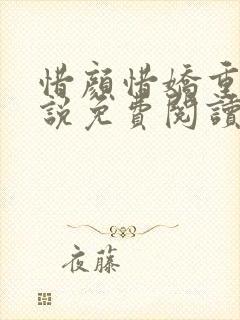 惜顏惜嬌重
說免費閱讀
夜藤